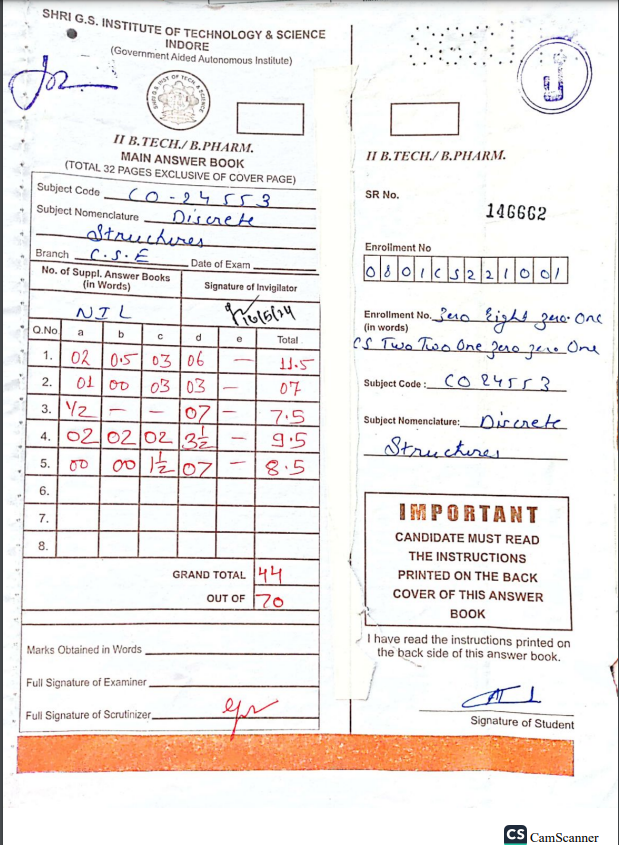 SHRI G.S. INSTITUTE OF TECHNOLOGY & SCIENCE
INDORE
(Government Aided Autonomous Institute)
SHRI G.S. INST OF TECH & SCIENCE
II B.TECH./ B.PHARM.
MAIN ANSWER BOOK
(TOTAL 32 PAGES EXCLUSIVE OF COVER PAGE)
Subject Code CO-24553
Subject Nomenclature Discrete
Structures
Branch C.S.E Date of Exam
No. of Suppl. Answer Books (in Words) Signature of Invigilator
NIL 16/5/24
Q.No. a b c d e Total
1. 02 0.5 03 06 — 11.5
2. 01 00 03 03 — 07
3. 1/2 — — 07 — 7.5
4. 02 02 02 3 1/2 — 9.5
5. 00 00 1 1/2 07 — 8.5
6.
7.
8.
GRAND TOTAL 44
OUT OF 70
Marks Obtained in Words
Full Signature of Examiner
Full Signature of Scrutinizer
II B.TECH./ B.PHARM.
SR No.
146662
Enrollment No
0801CS221001
Enrollment No. Zero Eight Zero One
(in words)
CS Two Two One zero zero One
Subject Code : CO 24553
Subject Nomenclature: Discrete
Structures
IMPORTANT
CANDIDATE MUST READ
THE INSTRUCTIONS
PRINTED ON THE BACK
COVER OF THIS ANSWER
BOOK
I have read the instructions printed on
the back side of this answer book.
Signature of Student
CS CamScanner